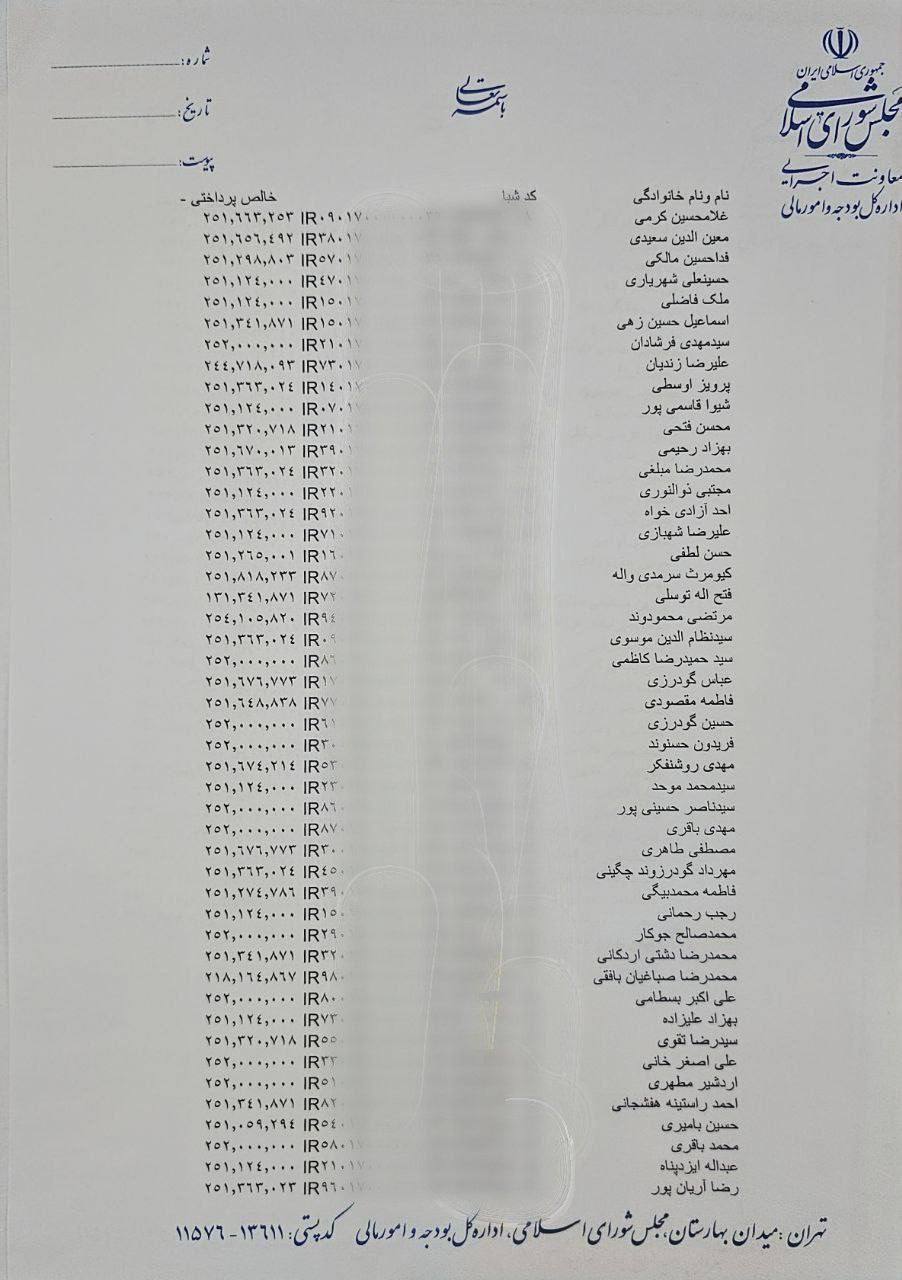 جمهوری اسلامی ایران
مجلس شورای اسلامی
معاونت اجرایی
اداره کل بودجه و امور مالی
باسمه تعالی
شماره:
تاریخ:
پیوست:
نام ونام خانوادگی کد شبا خالص پرداختی -
غلامحسین کرمی IR۰۹۰۱۷ ۲۵۱,۶۶۳,۲۵۳
معین الدین سعیدی IR۳۸۰۱۷ ۲۵۱,۶۵۶,۴۹۲
فداحسین مالکی IR۵۷۰۱۷ ۲۵۱,۲۹۸,۸۰۳
حسینعلی شهریاری IR۴۷۰۱۷ ۲۵۱,۱۲۴,۰۰۰
ملک فاضلی IR۱۵۰۱۷ ۲۵۱,۱۲۴,۰۰۰
اسماعیل حسین زهی IR۱۵۰۱۷ ۲۵۱,۳۴۱,۸۷۱
سیدمهدی فرشادان IR۲۱۰۱۷ ۲۵۲,۰۰۰,۰۰۰
علیرضا زندیان IR۷۳۰۱۷ ۲۴۴,۷۱۸,۰۹۳
پرویز اوسطی IR۱۴۰۱۷ ۲۵۱,۳۶۳,۰۲۴
شیوا قاسمی پور IR۰۷۰۱۷ ۲۵۱,۱۲۴,۰۰۰
محسن فتحی IR۲۱۰۱ ۲۵۱,۳۲۰,۷۱۸
بهزاد رحیمی IR۳۹۰۱ ۲۵۱,۶۷۰,۰۱۳
محمدرضا مبلغی IR۳۲۰۱ ۲۵۱,۳۶۳,۰۲۴
مجتبی ذوالنوری IR۲۲۰۱ ۲۵۱,۱۲۴,۰۰۰
احد آزادی خواه IR۹۲۰ ۲۵۱,۳۶۳,۰۲۴
علیرضا شهبازی IR۷۱۰ ۲۵۱,۱۲۴,۰۰۰
حسن لطفی IR۱۶۰ ۲۵۱,۲۶۵,۰۰۱
کیومرث سرمدی واله IR۸۷۰ ۲۵۱,۸۱۸,۲۳۳
فتح اله توسلی IR۷۲ ۱۳۱,۳۴۱,۸۷۱
مرتضی محمودوند IR۹۴ ۲۵۴,۱۰۵,۸۲۰
سیدنظام الدین موسوی IR۰۹ ۲۵۱,۳۶۳,۰۲۴
سید حمیدرضا کاظمی IR۸۶ ۲۵۲,۰۰۰,۰۰۰
عباس گودرزی IR۱۷ ۲۵۱,۶۷۶,۷۷۳
فاطمه مقصودی IR۷۷ ۲۵۱,۶۴۸,۸۳۸
حسین گودرزی IR۶۱ ۲۵۲,۰۰۰,۰۰۰
فریدون حسنوند IR۳۰ ۲۵۲,۰۰۰,۰۰۰
مهدی روشنفکر IR۵۳ ۲۵۱,۶۷۴,۲۱۴
سیدمحمد موحد IR۲۳ ۲۵۱,۱۲۴,۰۰۰
سیدناصر حسینی پور IR۸۶۰ ۲۵۲,۰۰۰,۰۰۰
مهدی باقری IR۸۷۰ ۲۵۲,۰۰۰,۰۰۰
مصطفی طاهری IR۳۰۰ ۲۵۱,۶۷۶,۷۷۳
مهرداد گودرزوند چگینی IR۴۵۰ ۲۵۱,۳۶۳,۰۲۴
فاطمه محمدبیگی IR۳۹۰ ۲۵۱,۲۷۴,۷۸۶
رجب رحمانی IR۱۵۰ ۲۵۱,۱۲۴,۰۰۰
محمدصالح جوکار IR۲۹۰ ۲۵۲,۰۰۰,۰۰۰
محمدرضا دشتی اردکانی IR۳۲۰ ۲۵۱,۳۴۱,۸۷۱
محمدرضا صباغیان بافقی IR۹۸۰ ۲۱۸,۱۶۴,۸۶۷
علی اکبر بسطامی IR۸۰۰ ۲۵۲,۰۰۰,۰۰۰
بهزاد علیزاده IR۷۳۰ ۲۵۱,۱۲۴,۰۰۰
سیدرضا تقوی IR۵۵۰ ۲۵۱,۳۲۰,۷۱۸
علی اصغر خانی IR۳۳ ۲۵۲,۰۰۰,۰۰۰
اردشیر مطهری IR۵۱ ۲۵۲,۰۰۰,۰۰۰
احمد راستینه هفشجانی IR۸۲۰ ۲۵۱,۳۴۱,۸۷۱
حسین بامیری IR۵۴۰ ۲۵۱,۰۵۹,۲۹۴
محمد باقری IR۵۸۰۱۷ ۲۵۲,۰۰۰,۰۰۰
عبداله ایزدپناه IR۲۱۰۱۷ ۲۵۱,۱۲۴,۰۰۰
رضا آریان پور IR۹۶۰۱۷ ۲۵۱,۳۶۳,۰۲۳
تهران: میدان بهارستان، مجلس شورای اسلامی، اداره کل بودجه و امور مالی کد پستی: ۱۳۶۱۱-۱۱۵۷۶